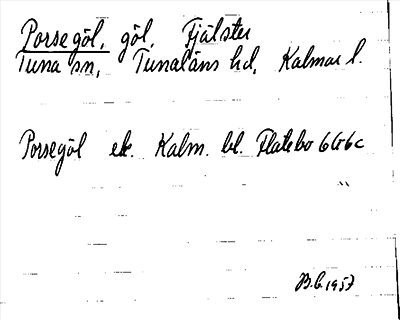 Porsegöl, göl, Fjälster
Tuna sn, Tunaläns hd, Kalmar l.
Porsegöl ek. Kalm. bl. Flatebo 6G6c
B.G 1957